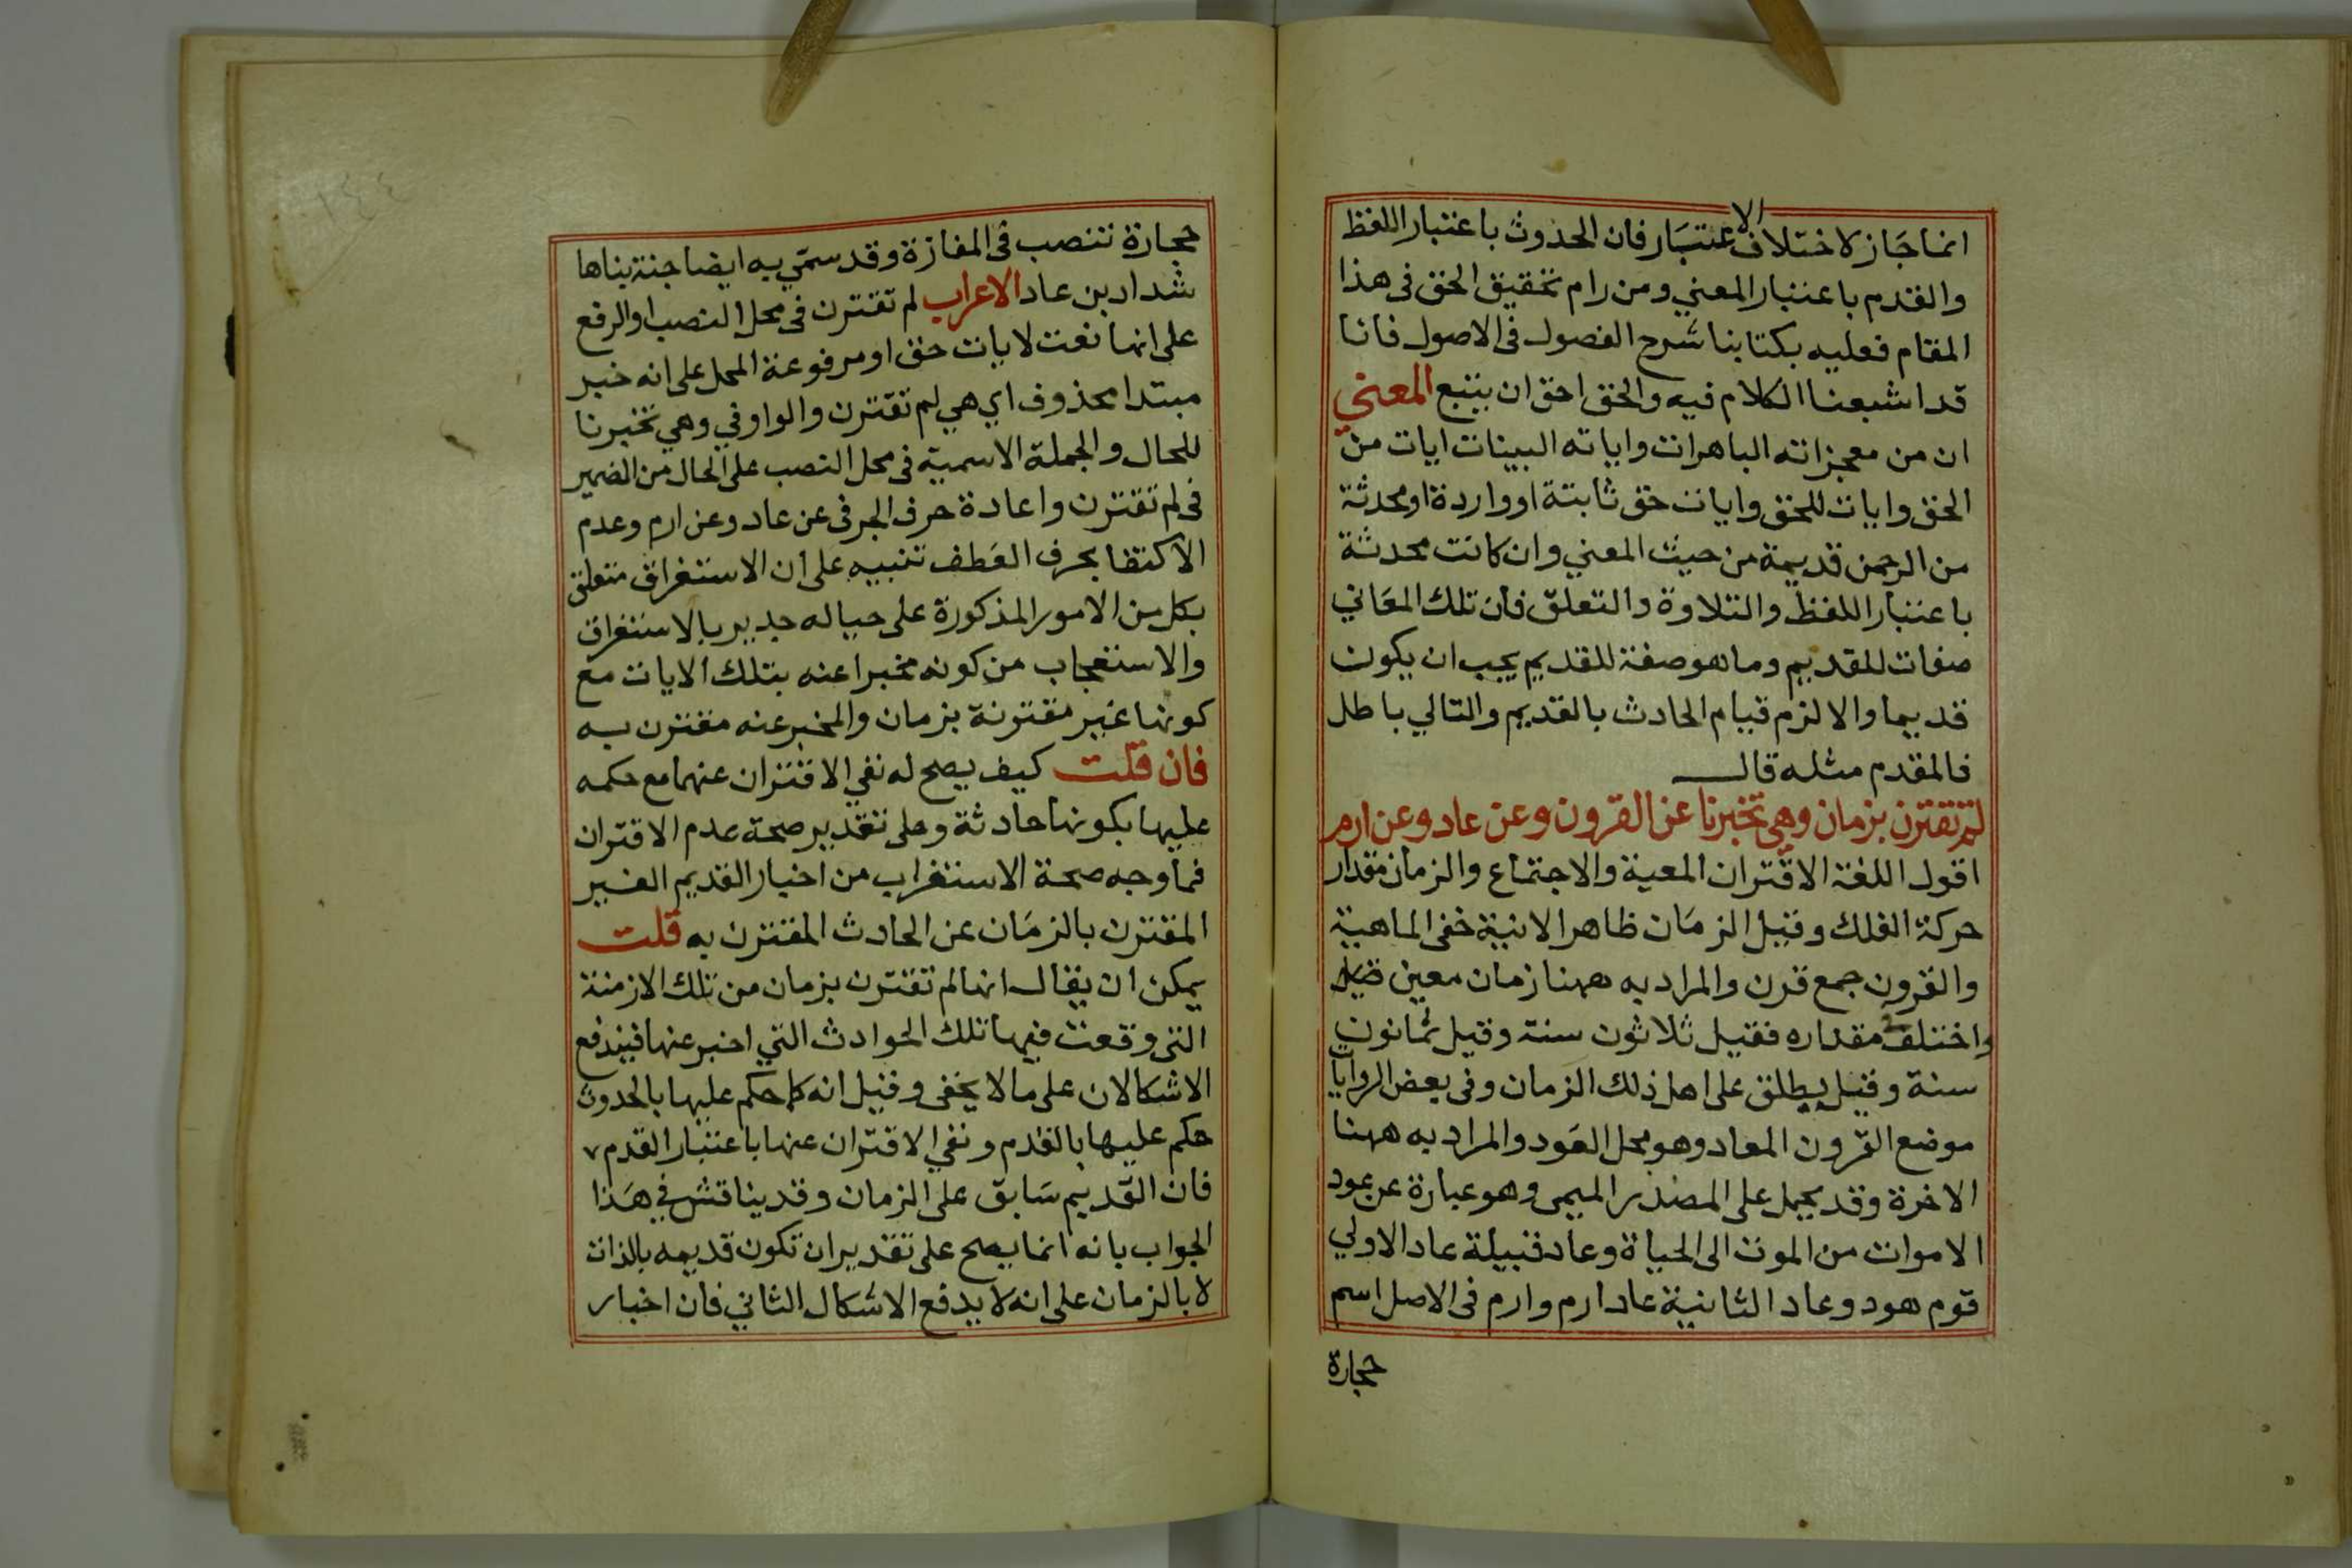 انما جاز لاختلاف الاعتبار فان الحدوث باعتبار اللفظ
والقدم باعتبار المعني ومن رام تحقيق الحق فى هذا
المقام فعليه بكتابنا شرح الفصول فى الاصول فانا
قد اشبعنا الكلام فيه والحق احق ان يتبع المعني
ان من معجزاته الباهرات واياته البينات ايات من
الحق وايات للحق وايات حق ثابتة او واردة او محدثة
من الرحمن قديمة من حيث المعني وان كانت محدثة
باعتبار اللفظ والتلاوة والتعلق فان تلك المعاني
صفات للقديم وما هو صفة للقديم يجب ان يكون
قديما والا لزم قيام الحادث بالقديم والتالي باطل
فالمقدم مثله قال
لم تقترن بزمان وهي تخبرنا عن القرون وعن عاد وعن ارم
اقول اللغة الاقتران المعية والاجتماع والزمان مقدار
حركة الفلك وقيل الزمان ظاهر الانية خفى الماهية
والقرون جمع قرن والمراد به ههنا زمان معين
واختلف مقداره فقيل ثلاثون سنة وقيل ثمانون
سنة وقيل يطلق على اهل ذلك الزمان وفى بعض الروايا
موضع القرون المعاد وهو محل العود والمراد به ههنا
الاخرة وقد يحمل على المصدر الميمى وهو عبارة عن عود
الاموات من الموت الى الحياة وعاد قبيلة عاد الاولي
قوم هود وعاد الثانية عاد ارم وارم فى الاصل اسم
حجارة
١٤٤
حجارة تنصب فى المفازة وقد سمّي به ايضا جنة بناها
شداد بن عاد الاعراب لم تقترن فى محل النصب او الرفع
على انها نعت لايات حق او مرفوعة المحل على انه خبر
مبتدا محذوف اي هي لم تقترن والواو في وهي تخبرنا
للحال والجملة الاسمية فى محل النصب على الحال من الضمير
فى لم تقترن واعادة حرف الجر فى عن عاد وعن ارم وعدم
الاكتفا بحرف العطف تنبيه على ان الاستغراق متعلق
بكل من الامور المذكورة على حياله جدير بالاستغراق
والاستعجاب من كونه مخبرا عنه بتلك الايات مع
كونها غير مقترنة بزمان والمخبر عنه مقترن به
فان قلت كيف يصح له نفي الاقتران عنها مع حكمه
عليها بكونها حادثة وعلى تقدير صحة عدم الاقتران
فما وجه صحة الاستغراب من اخبار القديم الغير
المقترن بالزمان عن الحادث المقترن به قلت
يمكن ان يقال انها لم تقترن بزمان من تلك الازمنة
التى وقعت فيها تلك الحوادث التي اخبر عنها فيندفع
الاشكالان على ما لا يخفى وقيل انه كما حكم عليها بالحدوث
حكم عليها بالقدم ونفي الاقتران عنها باعتبار القدم
فان القديم سابق على الزمان وقد يناقش في هذا
الجواب بانه انما يصح على تقدير ان تكون قديمه بالذات
لا بالزمان على انه لا يدفع الاشكال الثاني فان اخبار